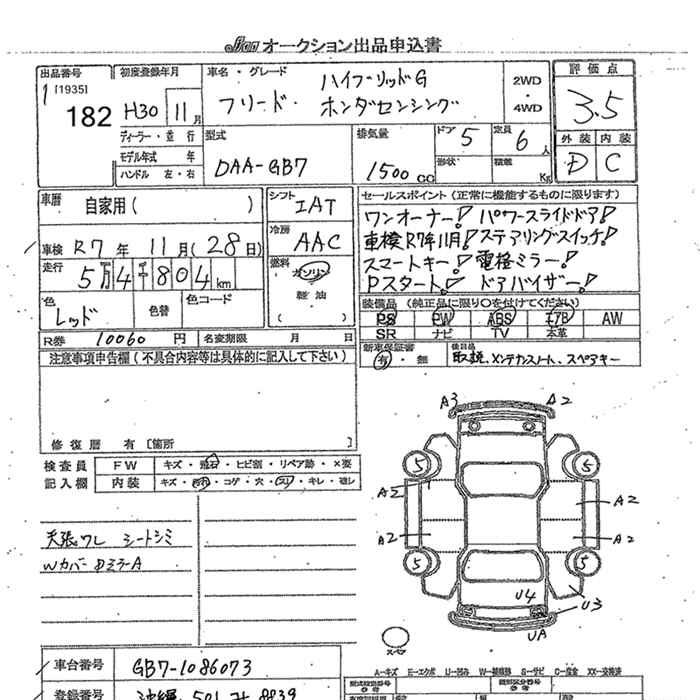 Jaa オークション出品申込書
出品番号
[1935]
182
初度登録年月
H30 11月
ディーラー・並行
モデル年式 年
ハンドル 左・右
車名・グレード
ハイブリッドG
フリード・ホンダセンシング
2WD
・
4WD
評価点
3.5
外装 内装
D C
型式
DAA-GB7
排気量
1500 CC
ドア 5
定員 6人
形状
積載 Kg
車歴
自家用( )
シフト IAT
冷房 AAC
車検 R7年11月(28日)
走行
5万4千804km
燃料
ガソリン
軽油
( )
色
レッド
色替
色コード
R券 10060円
名変期限 月 日
セールスポイント(正常に機能するものに限ります)
ワンオーナー! パワースライドドア!
車検R7年11月! ステアリングスイッチ!
スマートキー! 電格ミラー!
Pスタート! ドアバイザー!
装備品(純正品に限り○を付けてください)
PS PW ABS エアB AW
SR ナビ TV 本革
新車保証書
有・無
後日品
取説、メンテナンスノート、スペアキー
注意事項申告欄(不具合内容等は具体的に記入して下さい)
修復歴 有 [箇所 ]
検査員 FW キズ・飛石・ヒビ割・リペア跡・×要
記入欄 内装 キズ・汚れ・コゲ・穴・スリ・キレ・破レ
天張ワレ シートシミ
Wカバー Dミラー A
A3 A2
5 5
A2 A2
A2 A2
5 5
U4 U3
UA
スペア
A-キズ E-エクボ U-凹み W-補修跡 S-サビ C-腐食 XX-交換済
車台番号 GB7-1086073
登録番号 沖縄 501 8839